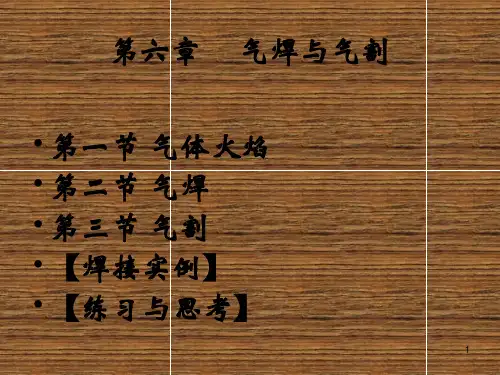 第六章 气焊与气割
•第一节 气体火焰
•第二节 气焊
•第三节 气割
•【焊接实例】
•【练习与思考】
1